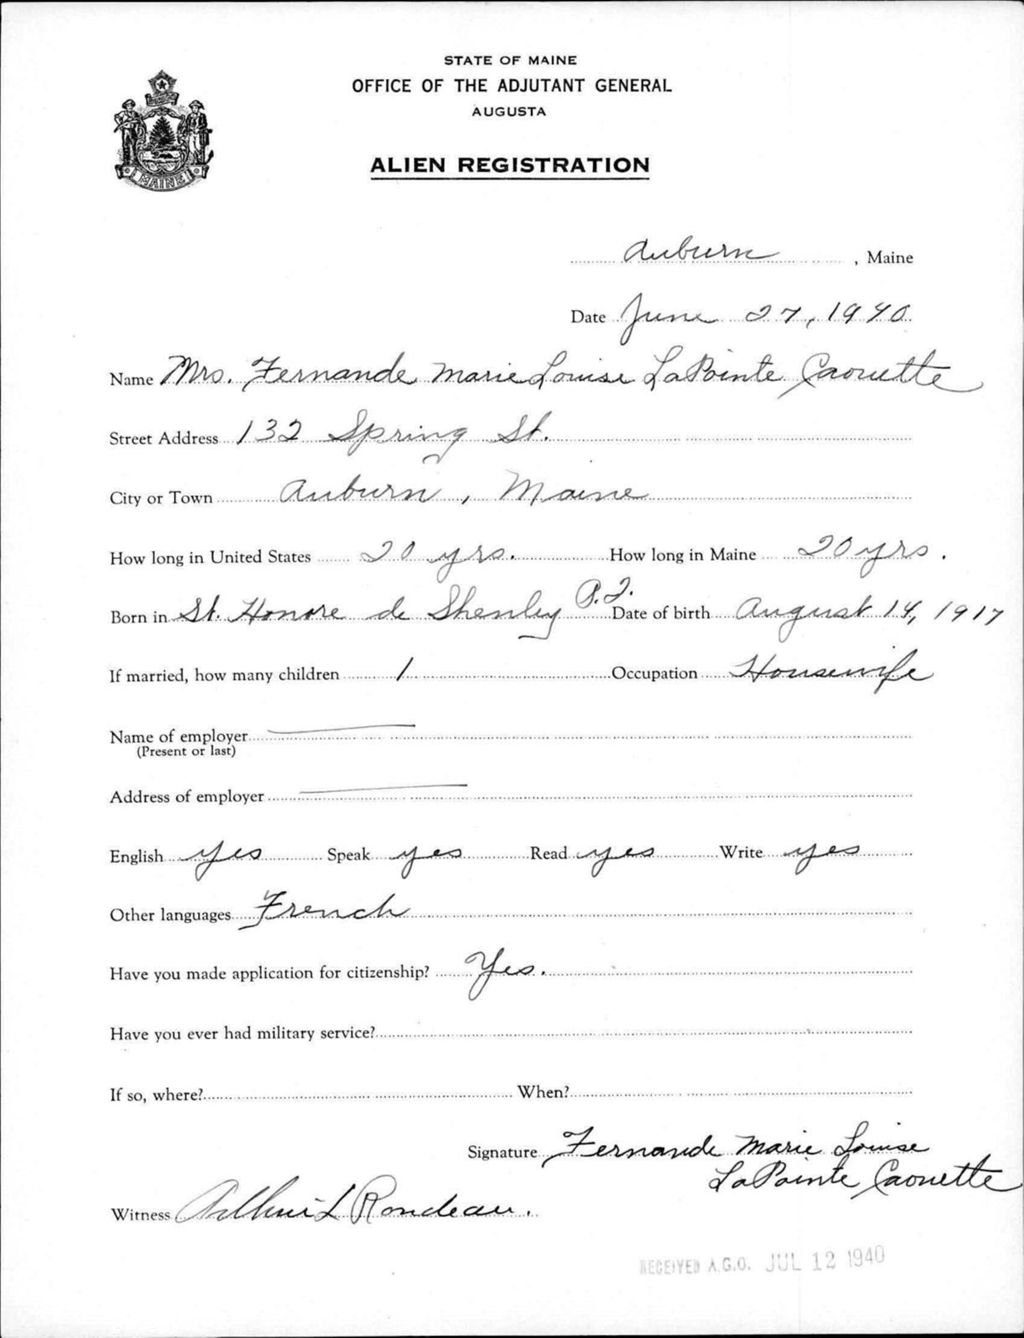 STATE OF MAINE
OFFICE OF THE ADJUTANT GENERAL
AUGUSTA
ALIEN REGISTRATION
MAINE
Auburn, Maine
Date June 27, 1940
Name Mrs. Fernande Marie Louise LaPointe Caouette
Street Address 132 Spring St.
City or Town Auburn, Maine
How long in United States 20 yrs. How long in Maine 20 yrs.
Born in St. Honore de Shenley P.Q. Date of birth August 14, 1917
If married, how many children 1 Occupation Housewife
Name of employer
(Present or last)
Address of employer
English yes Speak yes Read yes Write yes
Other languages French
Have you made application for citizenship? Yes.
Have you ever had military service?
If so, where? When?
Signature Fernande Marie Louise
LaPointe Caouette
Witness L Rondeau.
RECEIVED A.G.O. JUL 12 1940